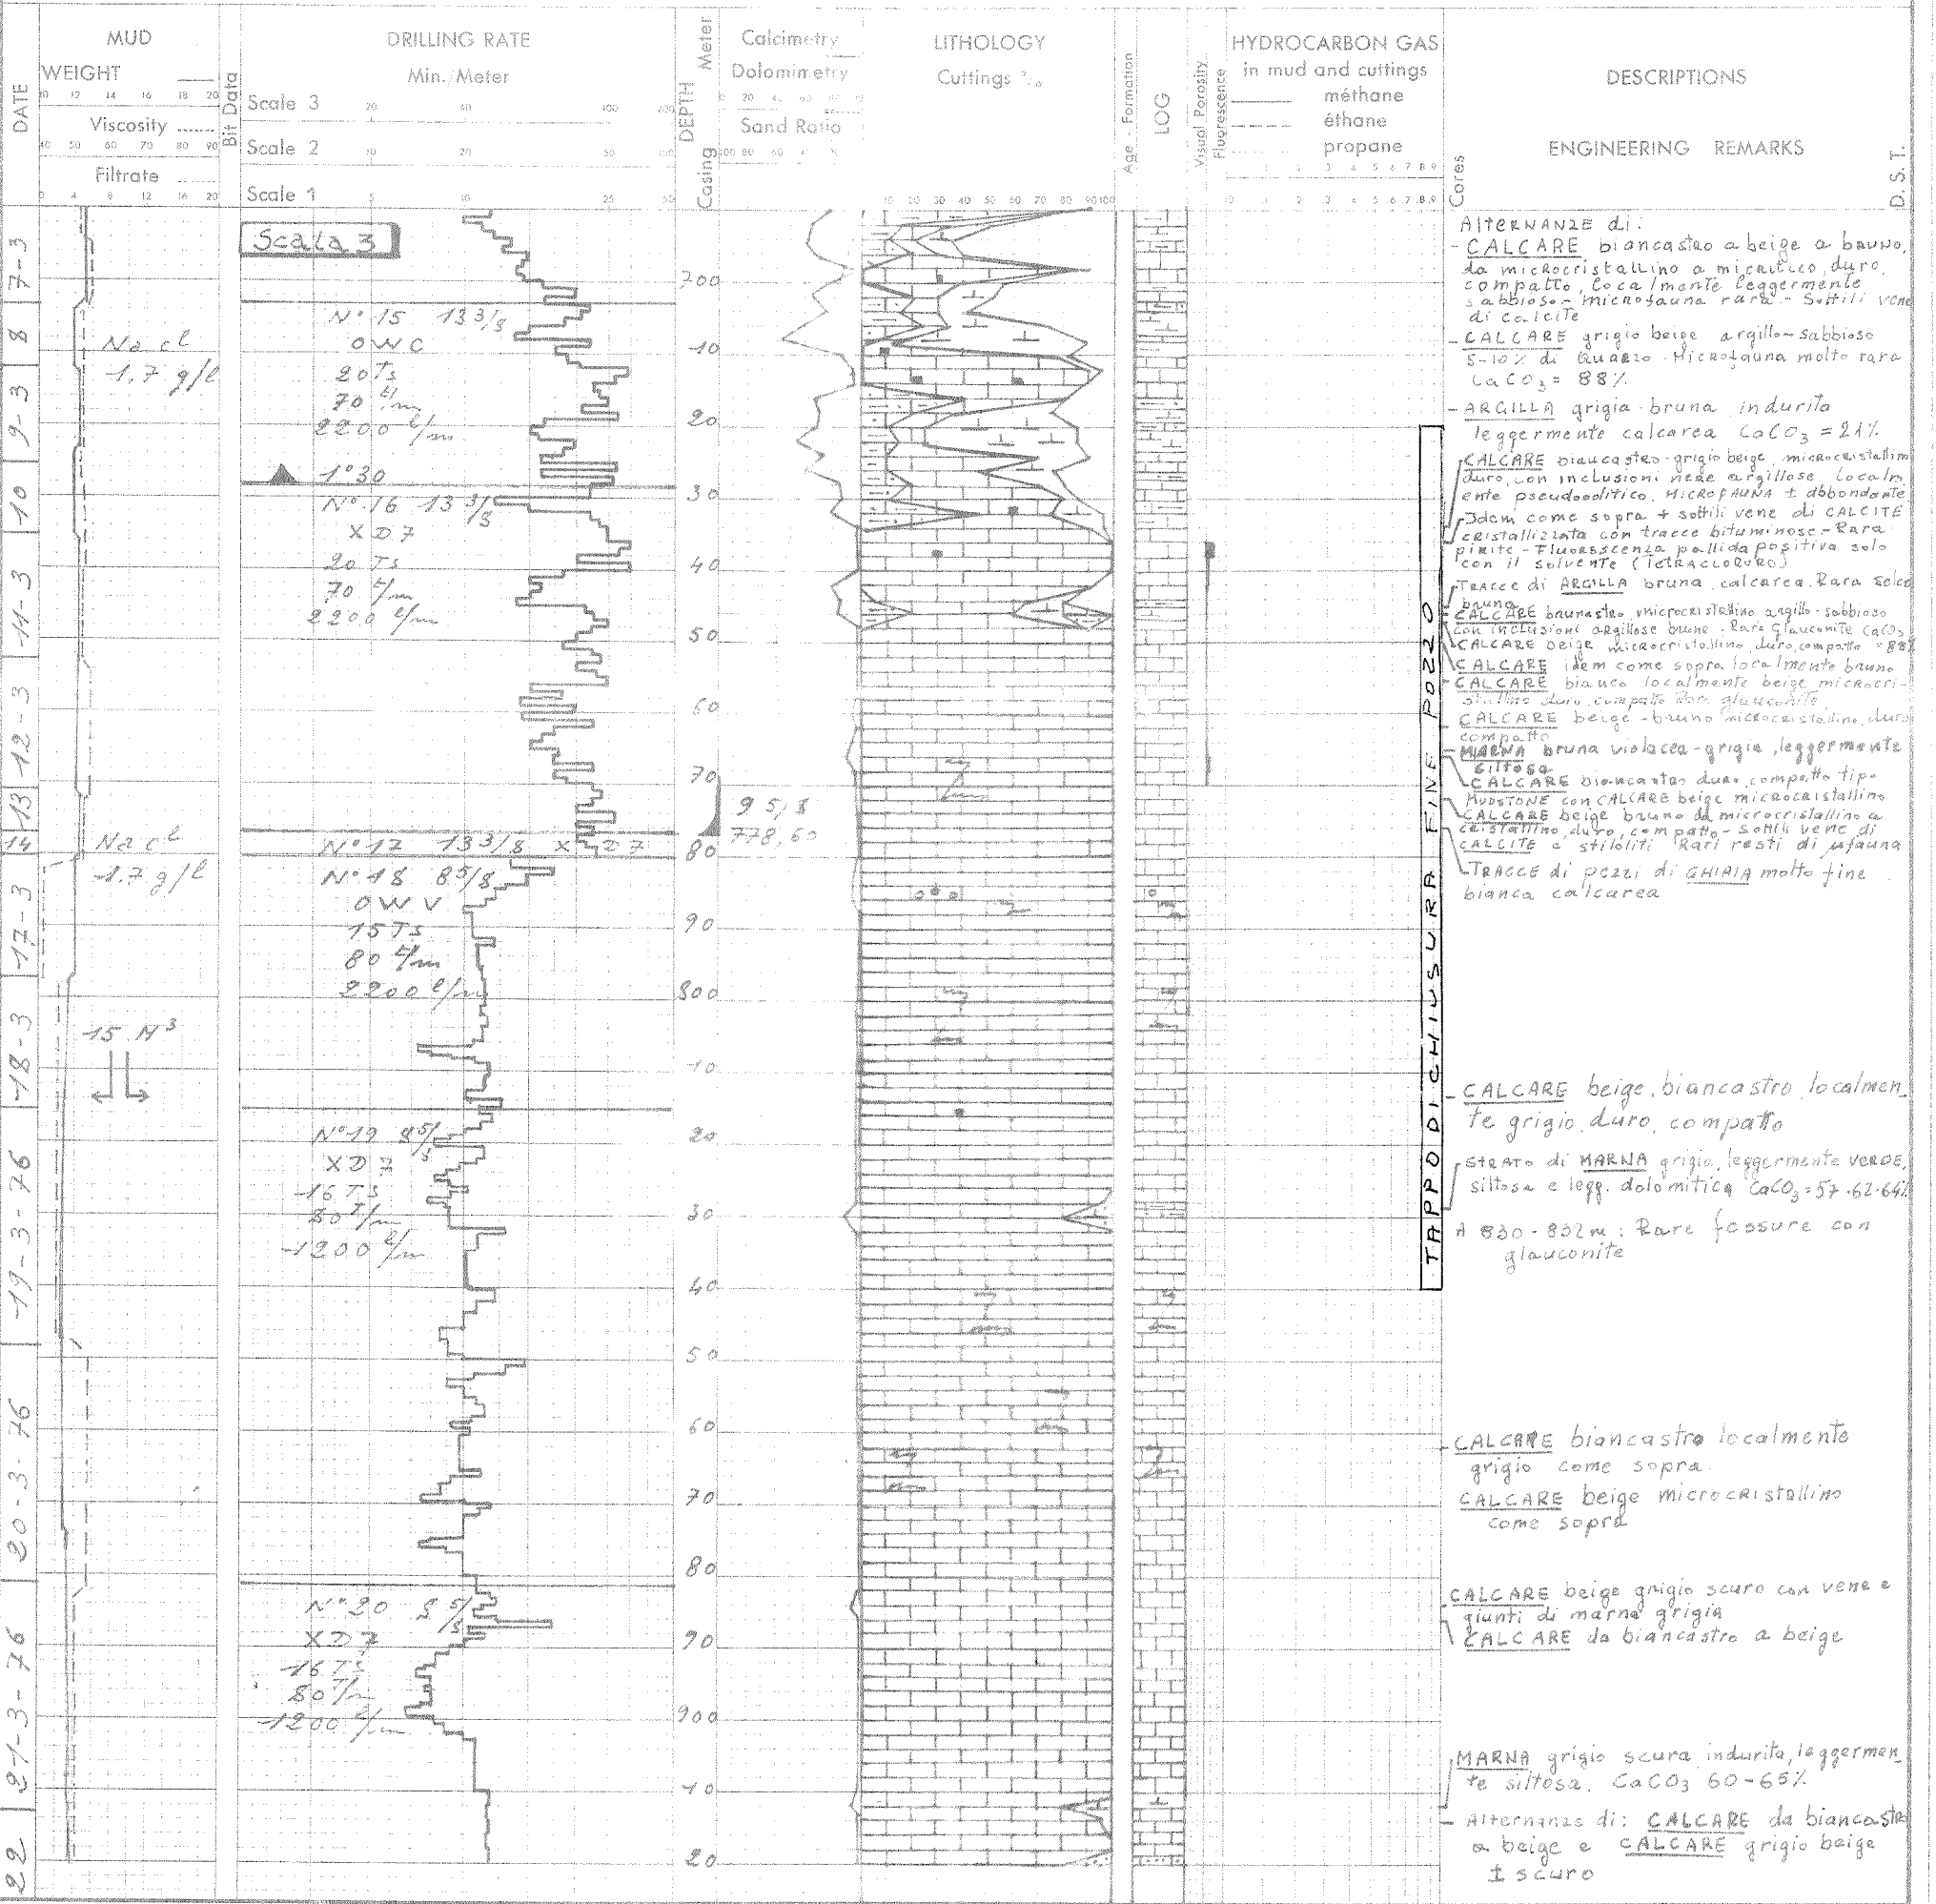 DATE
MUD
WEIGHT
10 12 14 16 18 20
Viscosity
40 50 60 70 80 90
Filtrate
0 4 8 12 16 20
Bit Data
DRILLING RATE
Min./Meter
Scale 3 20 40 100 200
Scale 2 10 20 50 100
Scale 1 5 10 25 50
DEPTH Meter
Casing
Calcimetry
Dolomimetry
Sand Ratio
LITHOLOGY
Cuttings %
10 20 30 40 50 60 70 80 90 100
Age - Formation
LOG
Visual Porosity
Fluorescence
HYDROCARBON GAS
in mud and cuttings
méthane
éthane
propane
Cores
DESCRIPTIONS
ENGINEERING REMARKS
D.S.T.
7-3
8
9-3
10
11-3
12-3
13
14
17-3
18-3
19-3-76
20-3-76
21-3-76
22
Na cl
1,7 g/l
Na cl
1,7 g/l
15 M³
Scala 3
N° 15 13 3/8
OWC
20 Ts
70 t/m
2200 l/m
1°30
N° 16 13 3/8
XD7
20 Ts
70 t/m
2200 l/m
N° 17 13 3/8 XD7
N° 18 8 5/8
OWV
15 Ts
80 t/m
2200 l/m
N° 19 8 5/8
XD7
16 TS
80 T/m
1200 l/m
N° 20 8 5/8
XD7
16 TS
80 T/m
1200 l/m
700
10
20
30
40
50
60
70
80
90
800
10
20
30
40
50
60
70
80
90
900
10
20
9 5/8
778,60
TAPPO DI CHIUSURA FINE POZZO
Alternanze di:
- CALCARE biancastro a beige a bruno,
da microcristallino a micritico, duro,
compatto, localmente leggermente
sabbioso - microfauna rara - Sottili vene
di calcite
- CALCARE grigio beige argillo-sabbioso
5-10% di Quarzo - Microfauna molto rara
CaCO₃ = 88%
- ARGILLA grigia-bruna indurita
leggermente calcarea CaCO₃ = 21%
CALCARE biancastro-grigio beige, microcristallino
duro, con inclusioni nere argillose localm
ente pseudoolitico. MICROFAUNA ± abbondante
Idem come sopra + sottili vene di CALCITE
cristallizzata con tracce bituminose - Rara
pirite - Fluorescenza pallida positiva solo
con il solvente (TETRACLORURO)
TRACCE di ARGILLA bruna calcarea. Rara selce
bruna
CALCARE brunastro microcristallino argillo-sabbioso
con inclusioni argillose brune. Rara Glauconite CaCO₃
CALCARE beige microcristallino, duro, compatto = 88%
CALCARE idem come sopra localmente bruno
CALCARE bianco localmente beige microcri-
stallino duro, compatto Rara glauconite
CALCARE beige-bruno microcristallino, duro
compatto
MARNA bruna violacea-grigia, leggermente
siltosa
CALCARE biancastro duro compatto tipo
MUDSTONE con CALCARE beige microcristallino
CALCARE beige bruno da microcristallino a
cristallino, duro, compatto - sottili vene di
CALCITE e stiloliti Rari resti di µfauna
TRACCE di pezzi di GHIAIA molto fine
bianca calcarea
CALCARE beige, biancastro localmen
te grigio, duro, compatto
STRATO di MARNA grigia, leggermente VERDE,
siltosa e legg. dolomitica CaCO₃=57-62-64%
A 830-832 m: Rare fessure con
glauconite
CALCARE biancastro localmente
grigio come sopra.
CALCARE beige microcristallino
come sopra
CALCARE beige grigio scuro con vene e
giunti di marna grigia
CALCARE da biancastro a beige
MARNA grigio scura indurita, leggermen
te siltosa. CaCO₃ 60-65%
- Alternanze di: CALCARE da biancastro
a beige e CALCARE grigio beige
± scuro